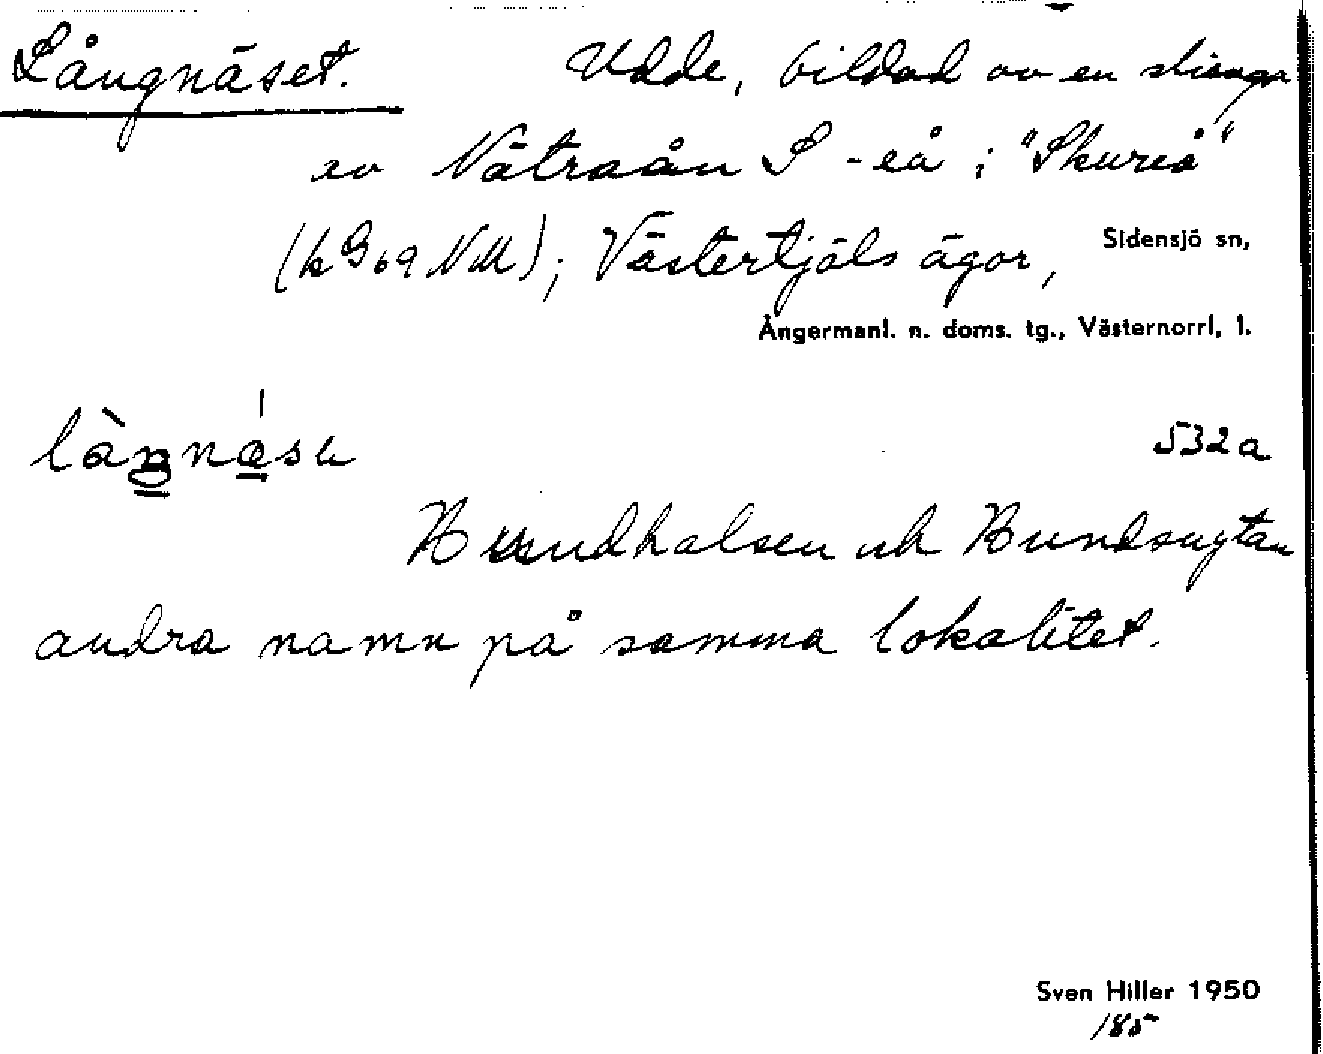 Långnäset. Udde, bildad av en slinga
av Nätraån S -eå i "Skureå"
(k G 69 NM); Västertjäls ägor, Sidensjö sn,
Ångermanl. n. doms. tg., Västernorrl. l.
532a
Hundhalsen och Hundsugtan
andra namn på samma lokalitet.
Sven Hiller 1950
185